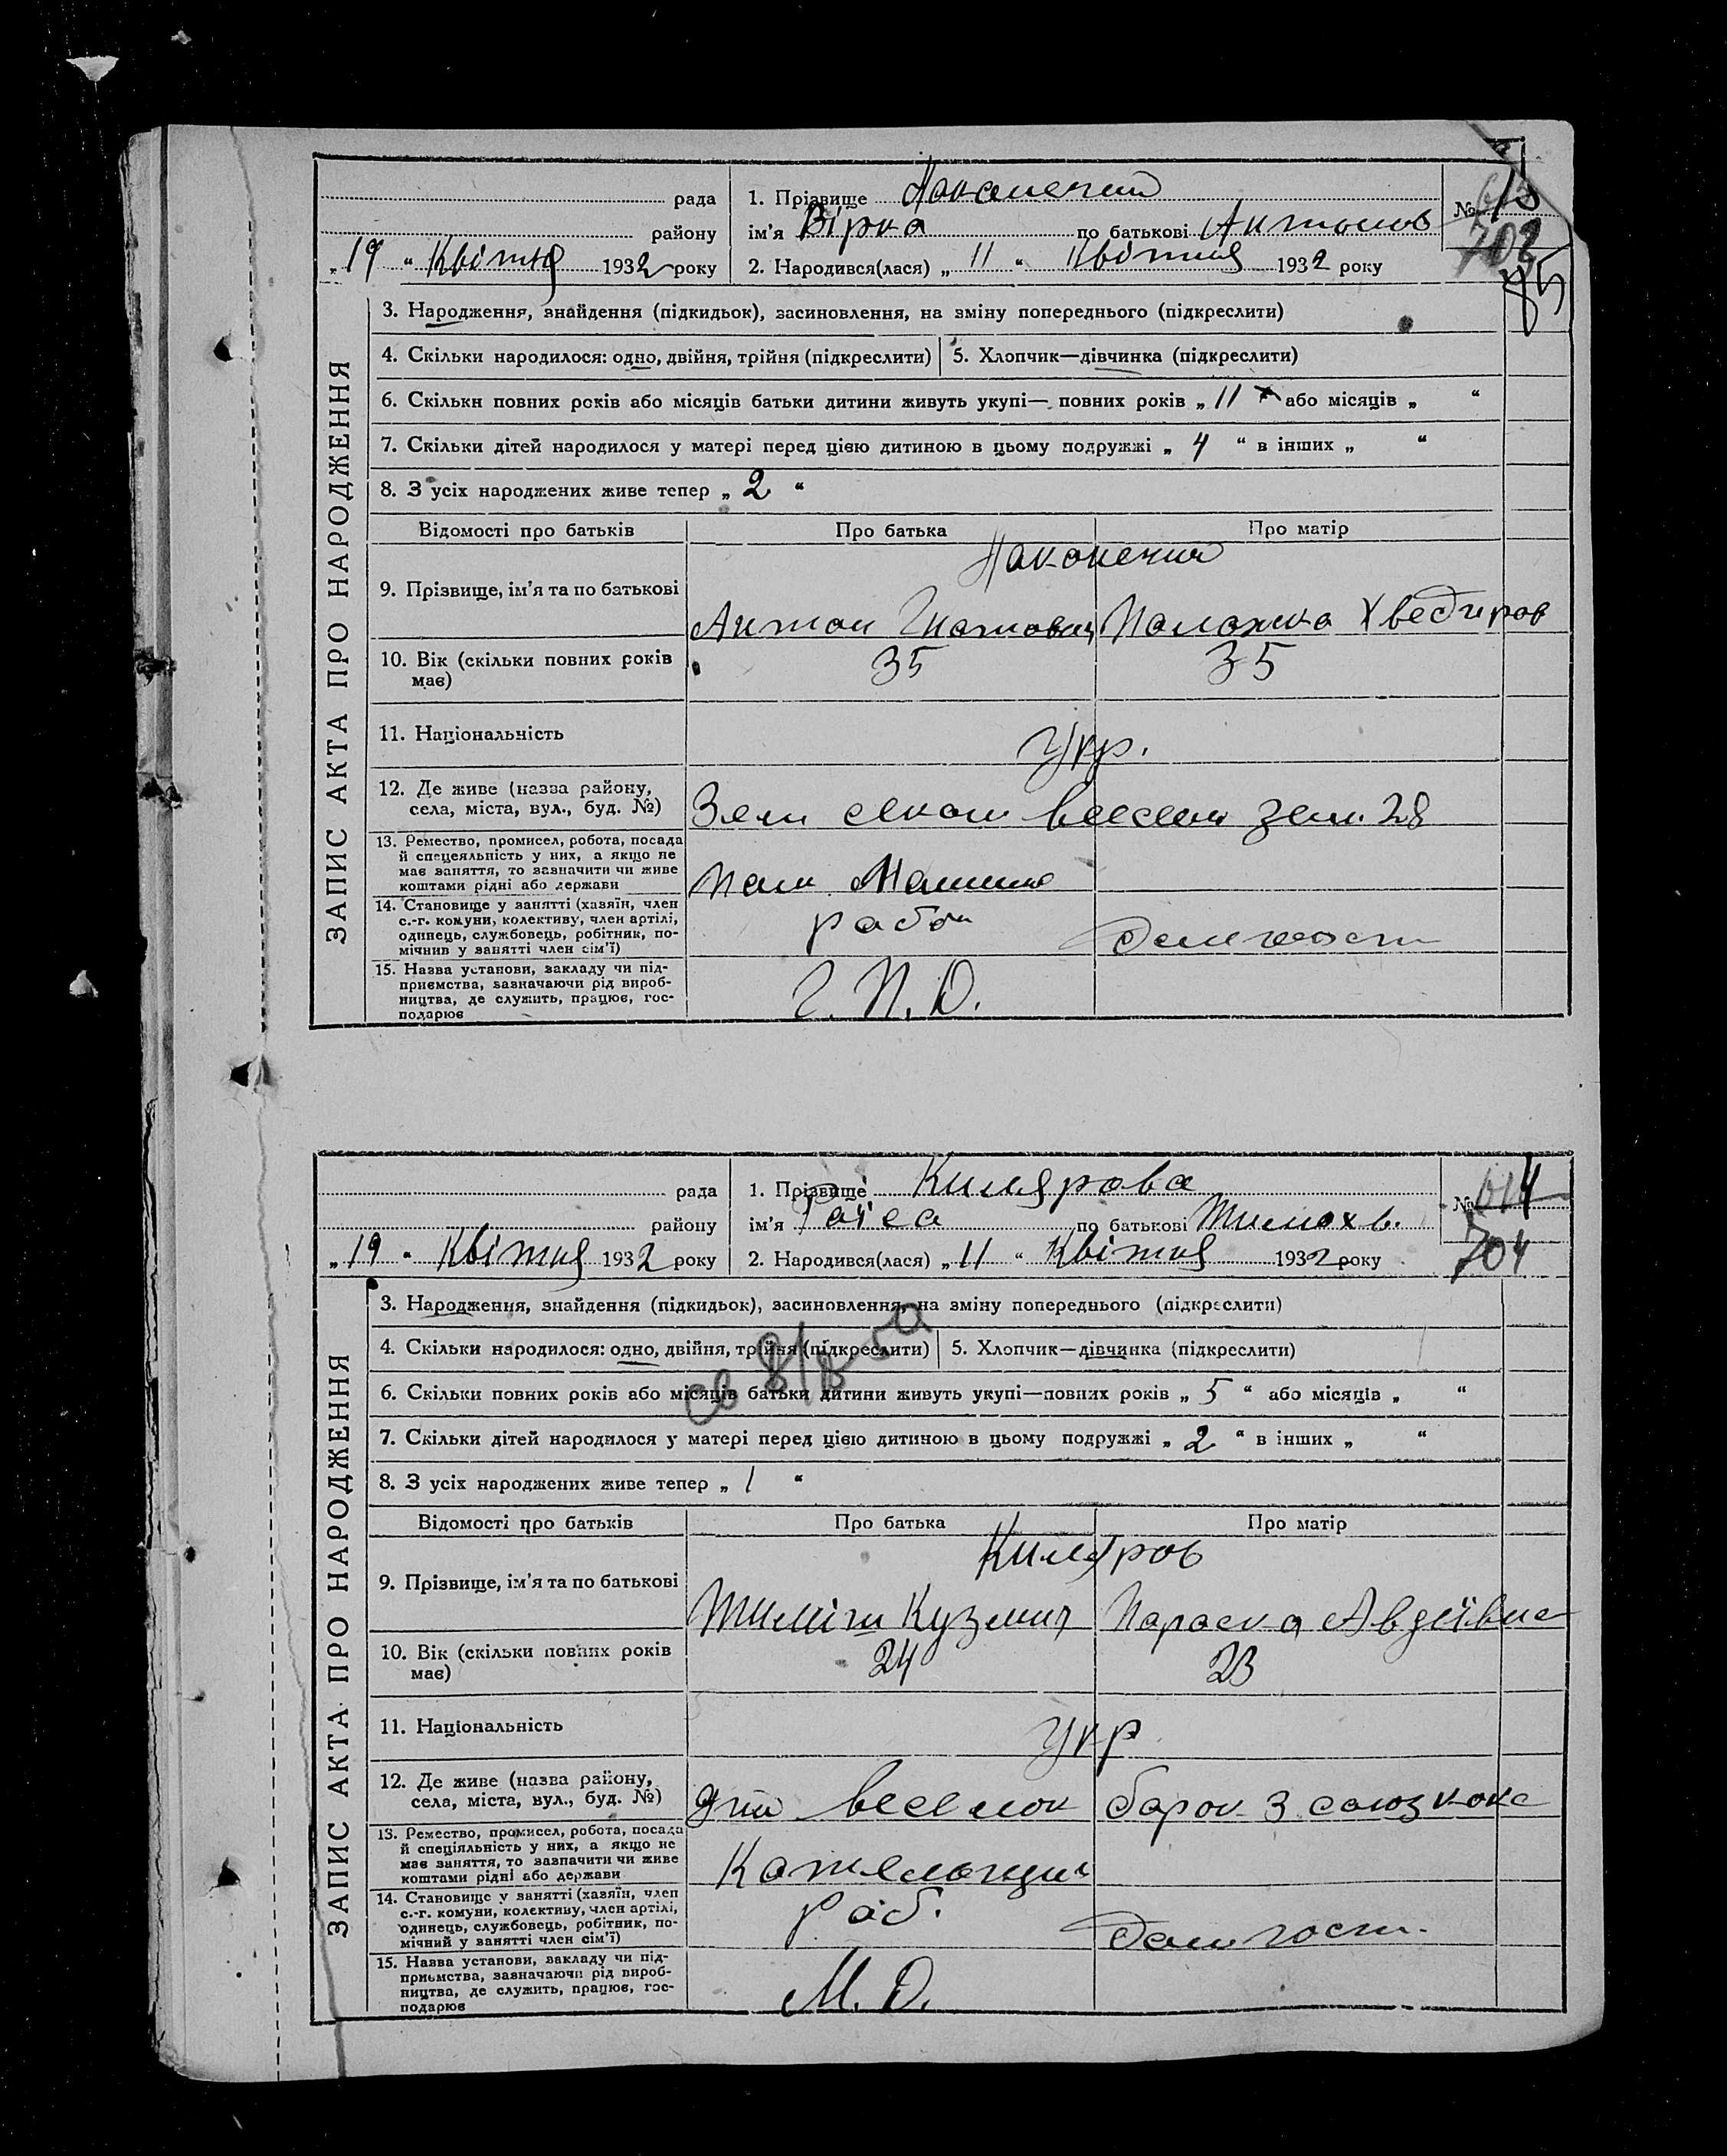 рада
району
„19“ Квітня 1932 року
1. Прізвище Наконечний
ім'я Вірка по батькові Антонов
2. Народився(лася) „11“ Квітня 1932 року
№ 613
703
75
ЗАПИС АКТА ПРО НАРОДЖЕННЯ
3. Народження, знайдення (підкидьок), засиновлення, на зміну попереднього (підкреслити)
4. Скільки народилося: одно, двійня, трійня (підкреслити) 5. Хлопчик—дівчинка (підкреслити)
6. Скільки повних років або місяців батьки дитини живуть укупі— повних років „11“ або місяців „ “
7. Скільки дітей народилося у матері перед цією дитиною в цьому подружжі „4“ в інших „ “
8. З усіх народжених живе тепер „2“
Відомості про батьків Про батька Про матір
Наконечни
9. Прізвище, ім'я та по батькові
Антон Гнатович Палажка Хведиров
10. Вік (скільки повних років
має)
35 35
11. Національність
Укр.
12. Де живе (назва району,
села, міста, вул., буд. №)
Зем 28
13. Ремество, промисел, робота, посада
й спецеяльність у них, а якщо не
має заняття, то зазначити чи живе
коштами рідні або держави
Пом Машин
14. Становище у занятті (хазяїн, член
с.-г. комуни, колективу, член артілі,
одинець, службовець, робітник, по-
мічнив у занятті член сім'ї)
рабоч
15. Назва установи, закладу чи під-
приємства, зазначаючи рід вироб-
ництва, де служить, працює, гос-
подарює
Г. П. Д.
рада
району
„19“ Квітня 1932 року
1. Прізвище Килярова
ім'я Раїса по батькові Тимохв.
2. Народився(лася) „11“ Квітня 1932 року
№ 614
704
ЗАПИС АКТА ПРО НАРОДЖЕННЯ
3. Народження, знайдення (підкидьок), засиновлення, на зміну попереднього (підкреслити)
4. Скільки народилося: одно, двійня, трійня (підкреслити) 5. Хлопчик—дівчинка (підкреслити)
6. Скільки повних років або місяців батьки дитини живуть укупі—повних років „5“ або місяців „ “
7. Скільки дітей народилося у матері перед цією дитиною в цьому подружжі „2“ в інших „ “
8. З усіх народжених живе тепер „1“
Відомості про батьків Про батька Про матір
Киляров
9. Прізвище, ім'я та по батькові
Тиміш Кузмич Параска Авдеївна
10. Вік (скільки повних років
має)
24 23
11. Національність
Укр
12. Де живе (назва району,
села, міста, вул., буд. №)
барак 3 союзкокс
13. Ремество, промисел, робота, посада
й спеціяльність у них, а якщо не
має заняття, то зазначити чи живе
коштами рідні або держави
Котельщик
14. Становище у занятті (хазяїн, член
с.-г. комуни, колективу, член артілі,
одинець, службовець, робітник, по-
мічний у занятті член сім'ї)
раб. Дом госп.
15. Назва установи, закладу чи під-
приємства, зазначаючи рід вироб-
ництва, де служить, працює, гос-
подарює
М. Д.